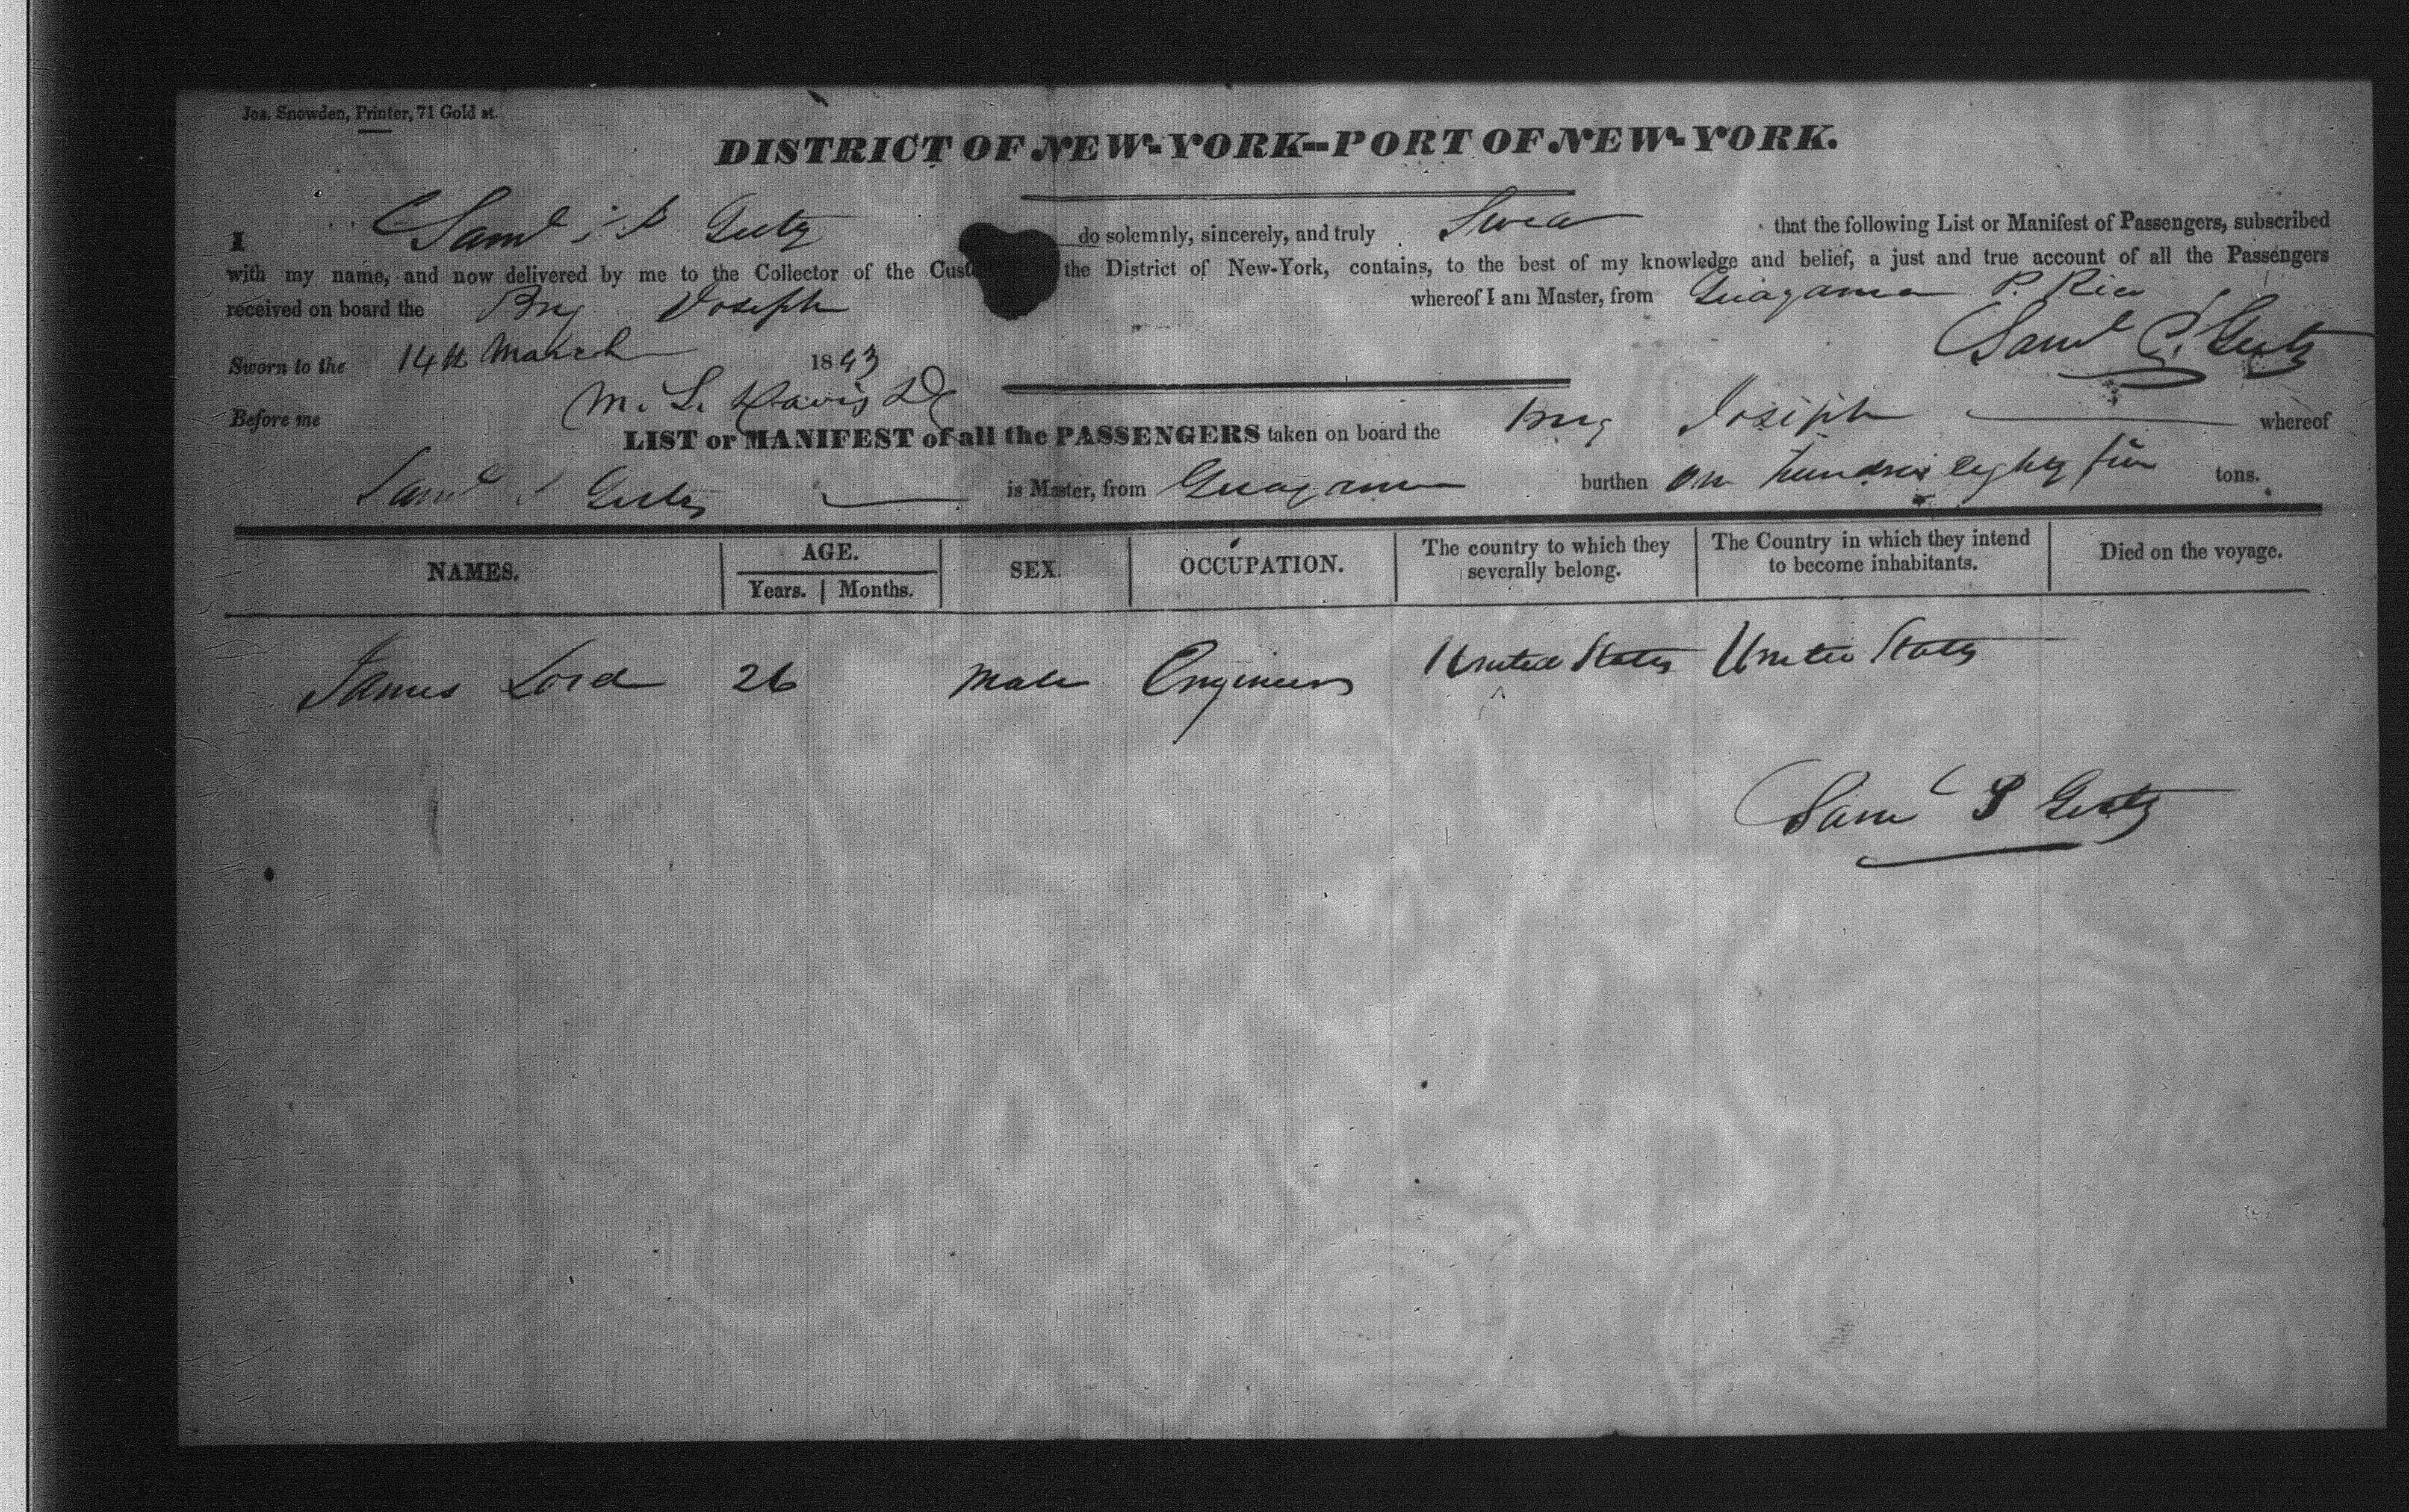 Jos. Snowden, Printer, 71 Gold st.
DISTRICT OF NEW-YORK--PORT OF NEW-YORK.
I Saml P Geutz do solemnly, sincerely, and truly Swear that the following List or Manifest of Passengers, subscribed
with my name, and now delivered by me to the Collector of the the District of New-York, contains, to the best of my knowledge and belief, a just and true account of all the Passengers
received on board the Brig Joseph whereof I am Master, from Guayama P. Rico
Saml P. Geutz
Sworn to the 14th March 1843
Before me M. L. Davis
LIST or MANIFEST of all the PASSENGERS taken on board the Brig Joseph whereof
Saml P Geutz is Master, from Guayama burthen one hundred eighty five tons.
NAMES. AGE. Years. Months. SEX. OCCUPATION. The country to which they severally belong. The Country in which they intend to become inhabitants. Died on the voyage.
James Lord 26 Male Engineer United States United States
Saml P Geutz